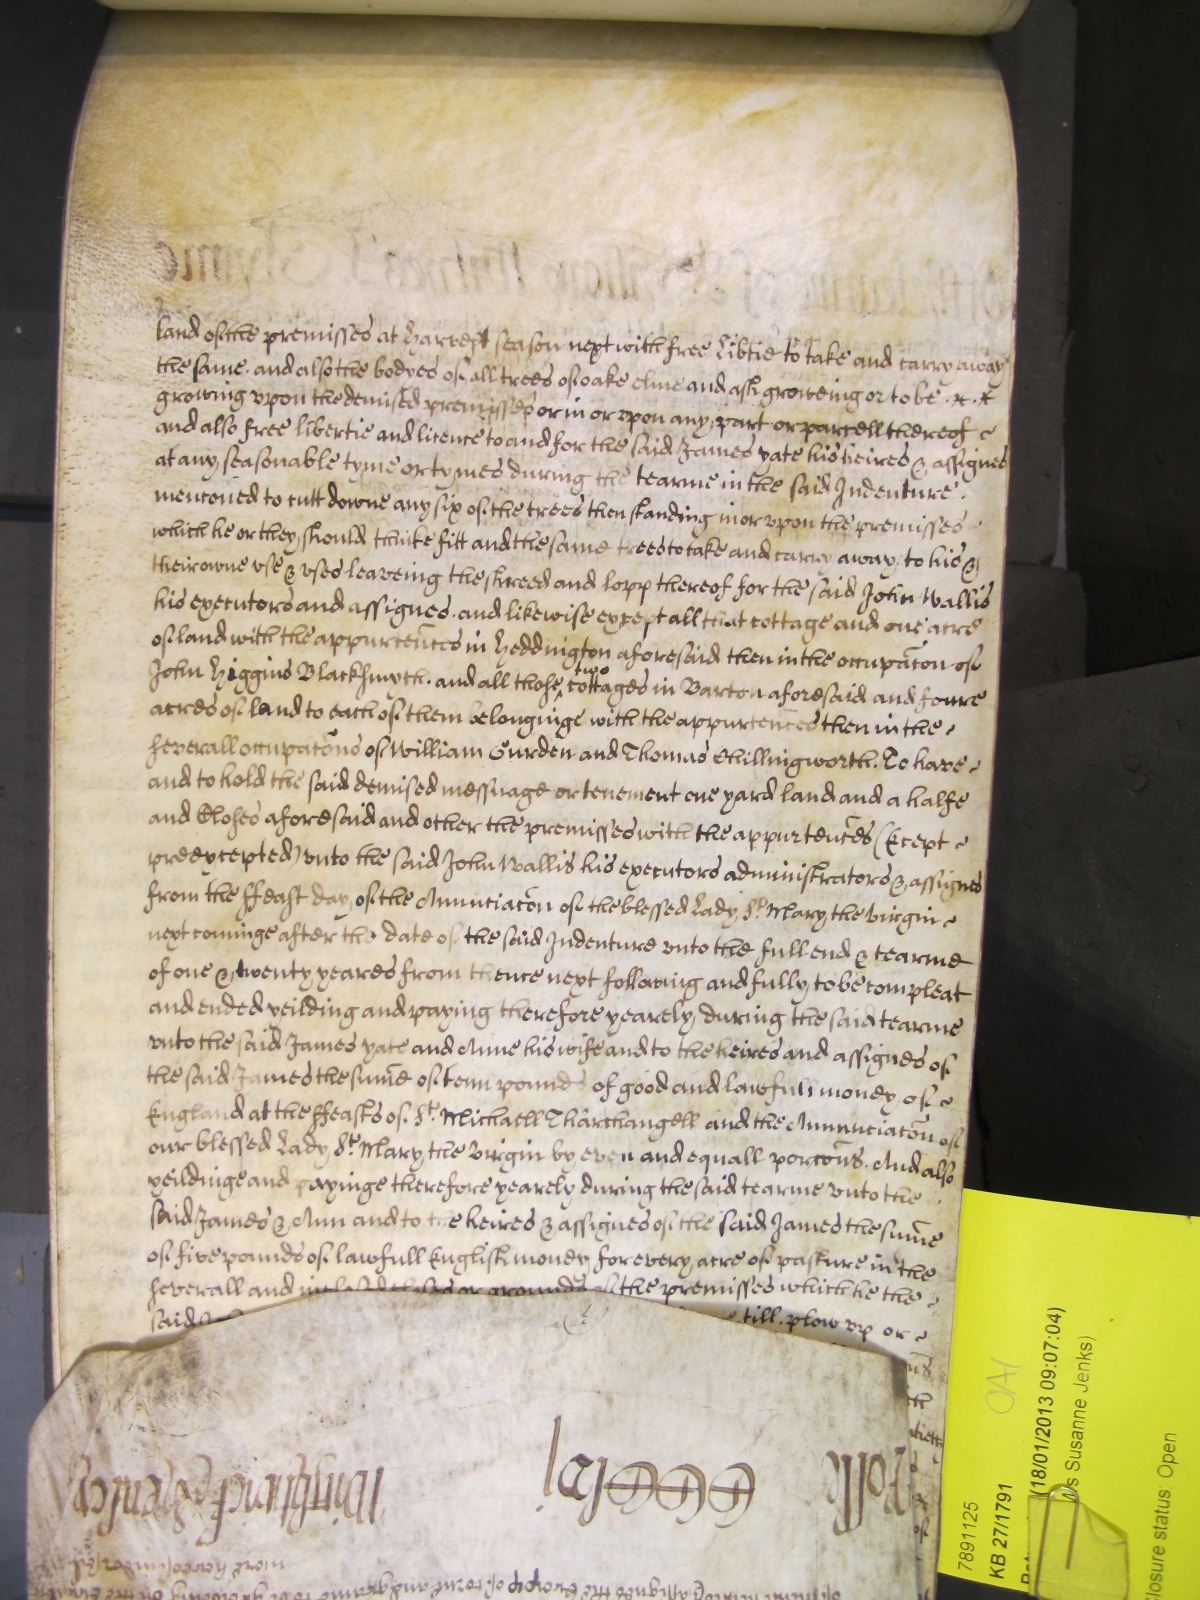 land of the premisses at harvest season next with free Libtie to take and carry away
the same. and also the bodyes of all trees of oake elme and ash groweing or to be
growing vpon the demised premisses or in or vpon any part or parcell thereof
and also free libertie and licence to and for the said James yate his heires & assignes
at any seasonable tyme or tymes during the tearme in the said Indenture
menconed to cutt downe any six of the trees then standing in or vpon the premisses
which he or they should thinke fitt and the same trees to take and carry away to his &
their owne vse & vses leaveing the shreed and lopp thereof for the said John Wallis
his executors and assignes. and likewise except all that cottage and one acre
of land with the appurtences in Heddington aforesaid then in the occupacon of
John Higgins Blacksmyth. and all those two cottages in Barton aforesaid and foure
acres of land to each of them belonginge with the appurtences then in the
severall occupacons of William Gurden and Thomas Chillingworth. To have
and to hold the said demised messuage or tenement one yard land and a halfe
and Closes aforesaid and other the premisses with the appurtences (Except
preexcepted) vnto the said John Wallis his executors administrators & assignes
from the ffeast day of the Annunciacon of the blessed Lady St Mary the virgin
next cominge after the date of the said Indenture vnto the full end & tearme
of one & twenty yeares from thence next following and fully to be compleat
and ended yeilding and paying therefore yearely during the said tearme
vnto the said James yate and Anne his wife and to the heires and assignes of
the said James the sume of tenn pounds of good and lawfull money of
England at the ffeasts of St. Michaell Tharchangell and the Annunciacon of
our blessed Lady St Mary the virgin by even and equall porcons. And also
yeildinge and payinge therefore yearely during the said tearme vnto the
said James & Ann and to the heires & assignes of the said James the sume
of five pounds of lawfull English money for every acre of pasture in the
severall and inclosed closes or grounds of the premisses which he the
said till. plow vp or
7891125
KB 27/1791
(18/01/2013 09:07:04)
s Susanne Jenks)
losure status: Open